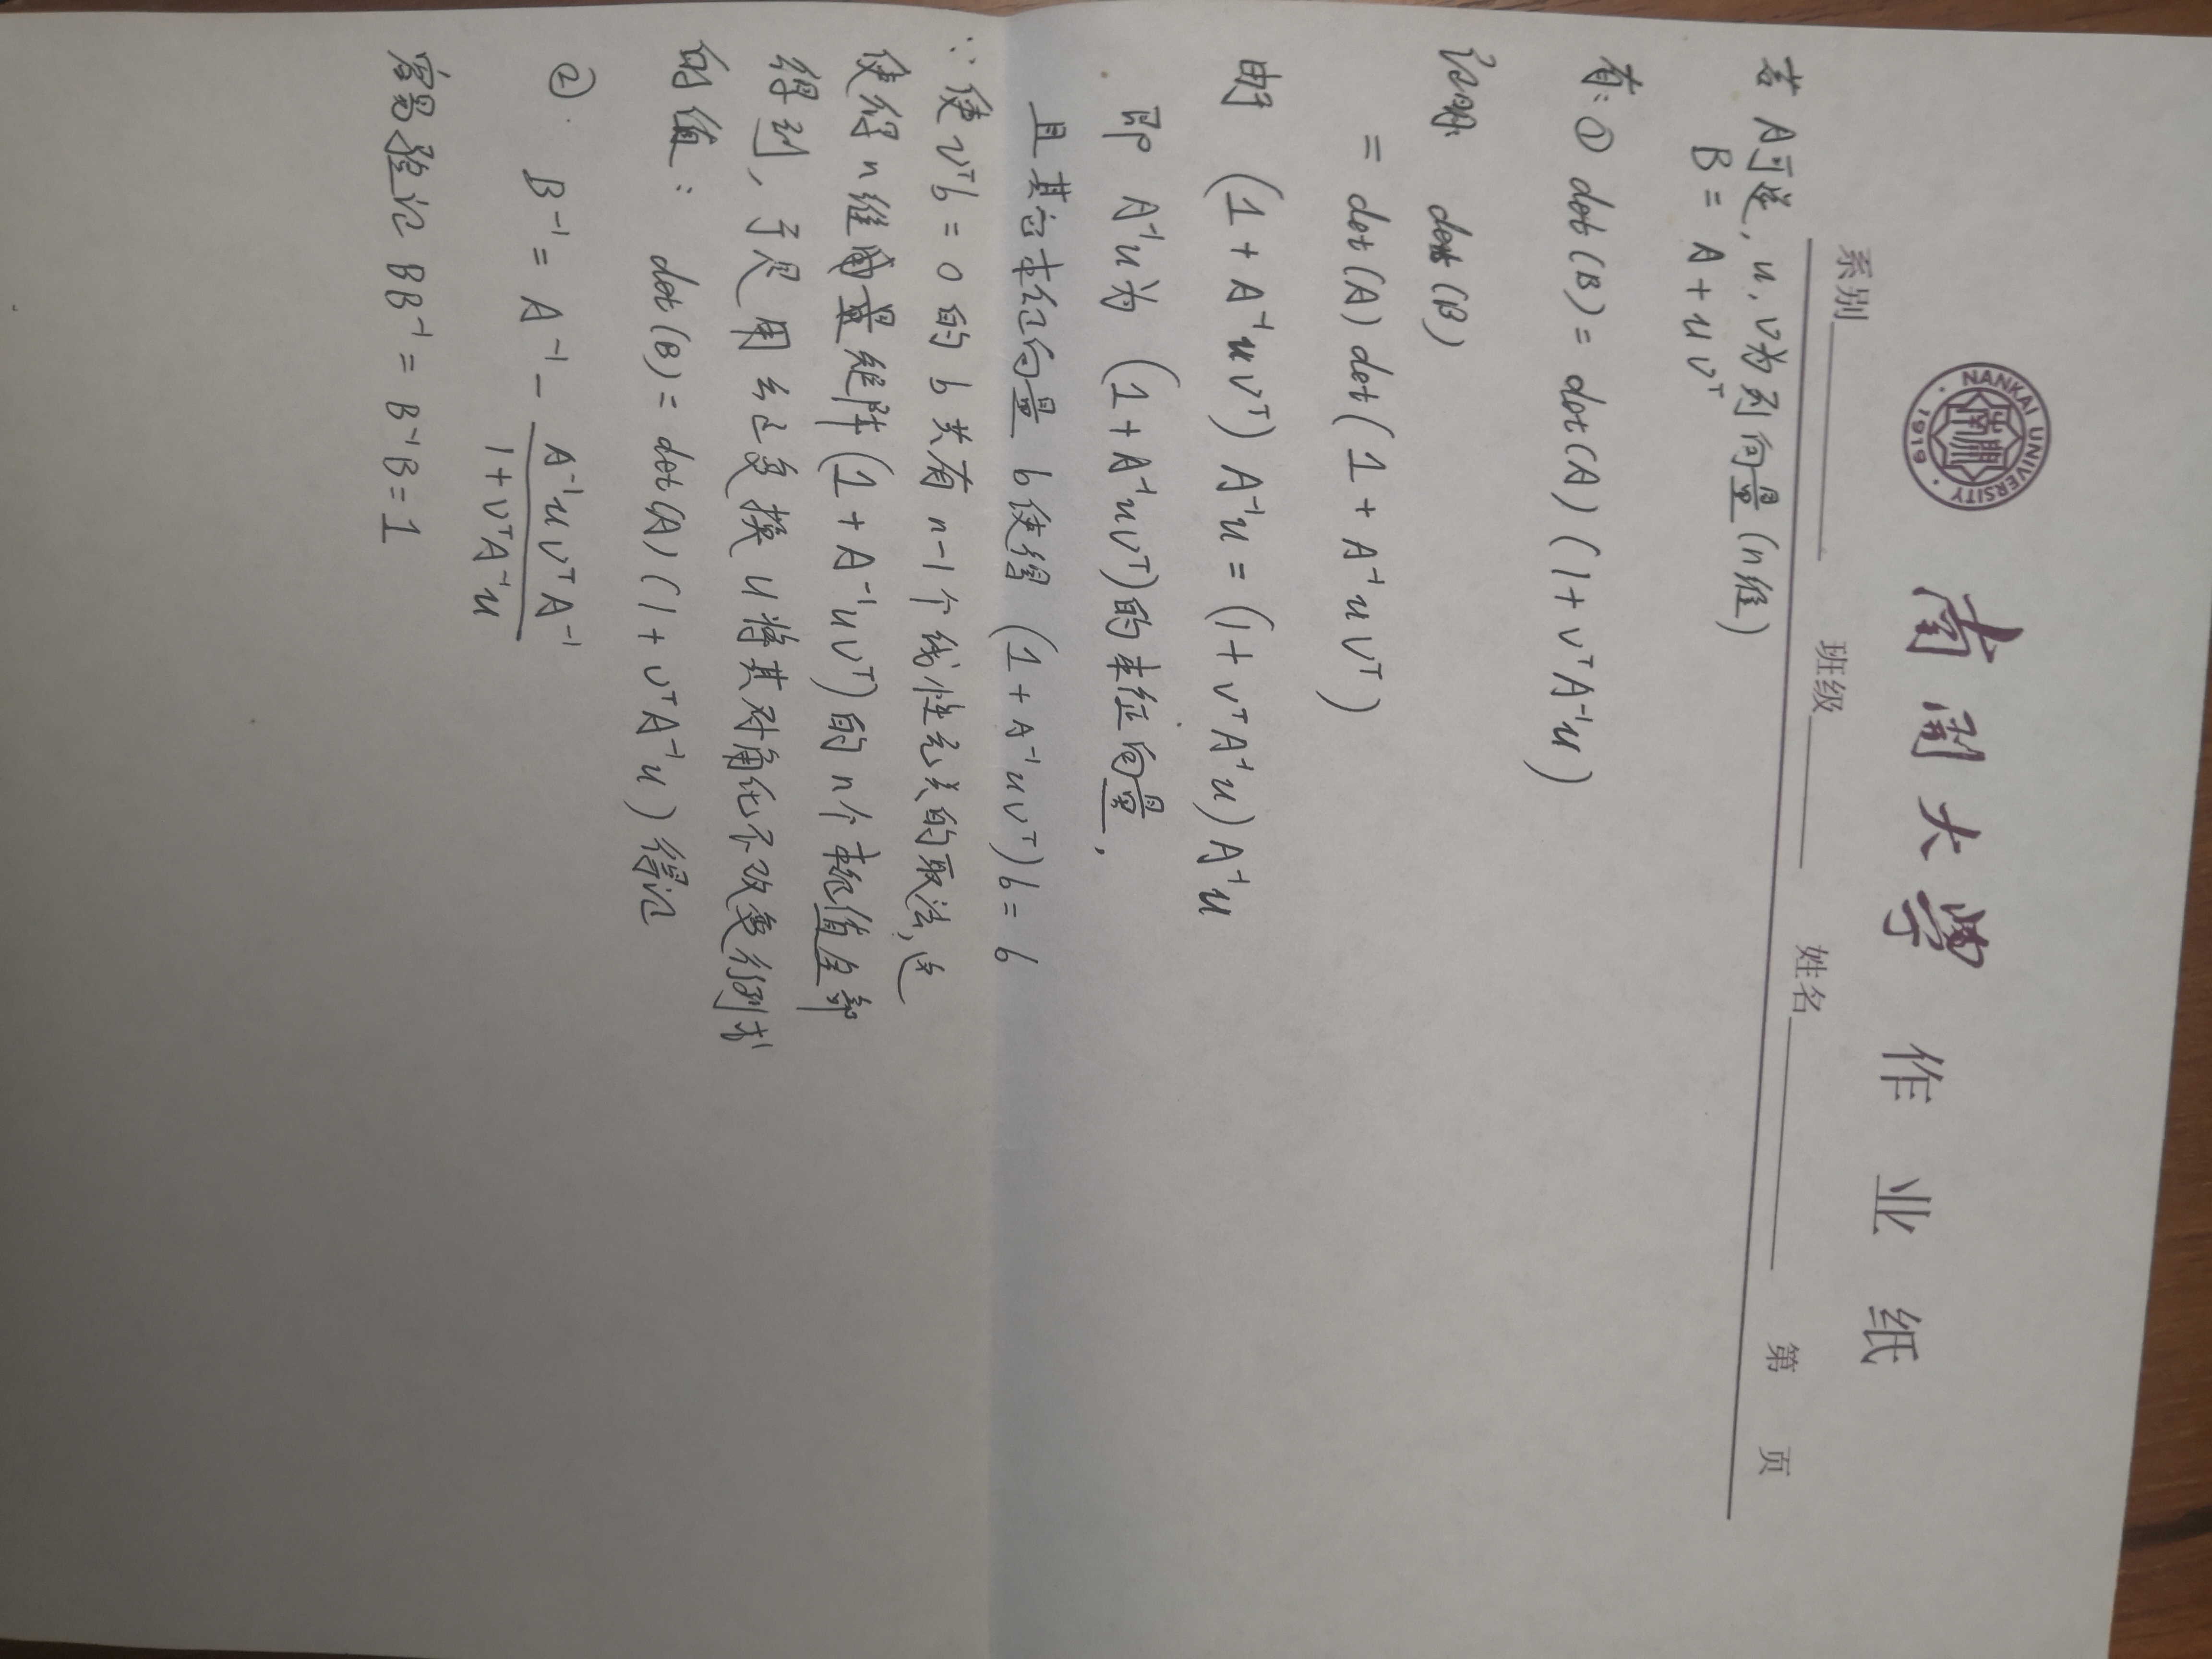 NANKAI UNIVERSITY
南開
1919
南開大學 作业纸
系别 班级 姓名 第 页
若 A可逆, u, v为列向量(n维)
B = A + u vᵀ
有: ① det(B) = det(A) (1 + vᵀA⁻¹u)
证明: det(B)
= det(A) det(1 + A⁻¹u vᵀ)
由于 (1 + A⁻¹u vᵀ) A⁻¹u = (1 + vᵀA⁻¹u) A⁻¹u
即 A⁻¹u为 (1 + A⁻¹uvᵀ)的本征向量,
且其它本征向量 b使得 (1 + A⁻¹uvᵀ)b = b
∵ 使vᵀb = 0 的 b 共有 n-1个线性无关的取法,这
使得n维矩阵(1 + A⁻¹uvᵀ)的n个本征值全部
得到, 于是用幺正变换 U将其对角化不改变行列式
的值: det(B) = det(A) (1 + vᵀA⁻¹u) 得证
② B⁻¹ = A⁻¹ - A⁻¹u vᵀA⁻¹ / 1 + vᵀA⁻¹u
容易验证 BB⁻¹ = B⁻¹B = 1